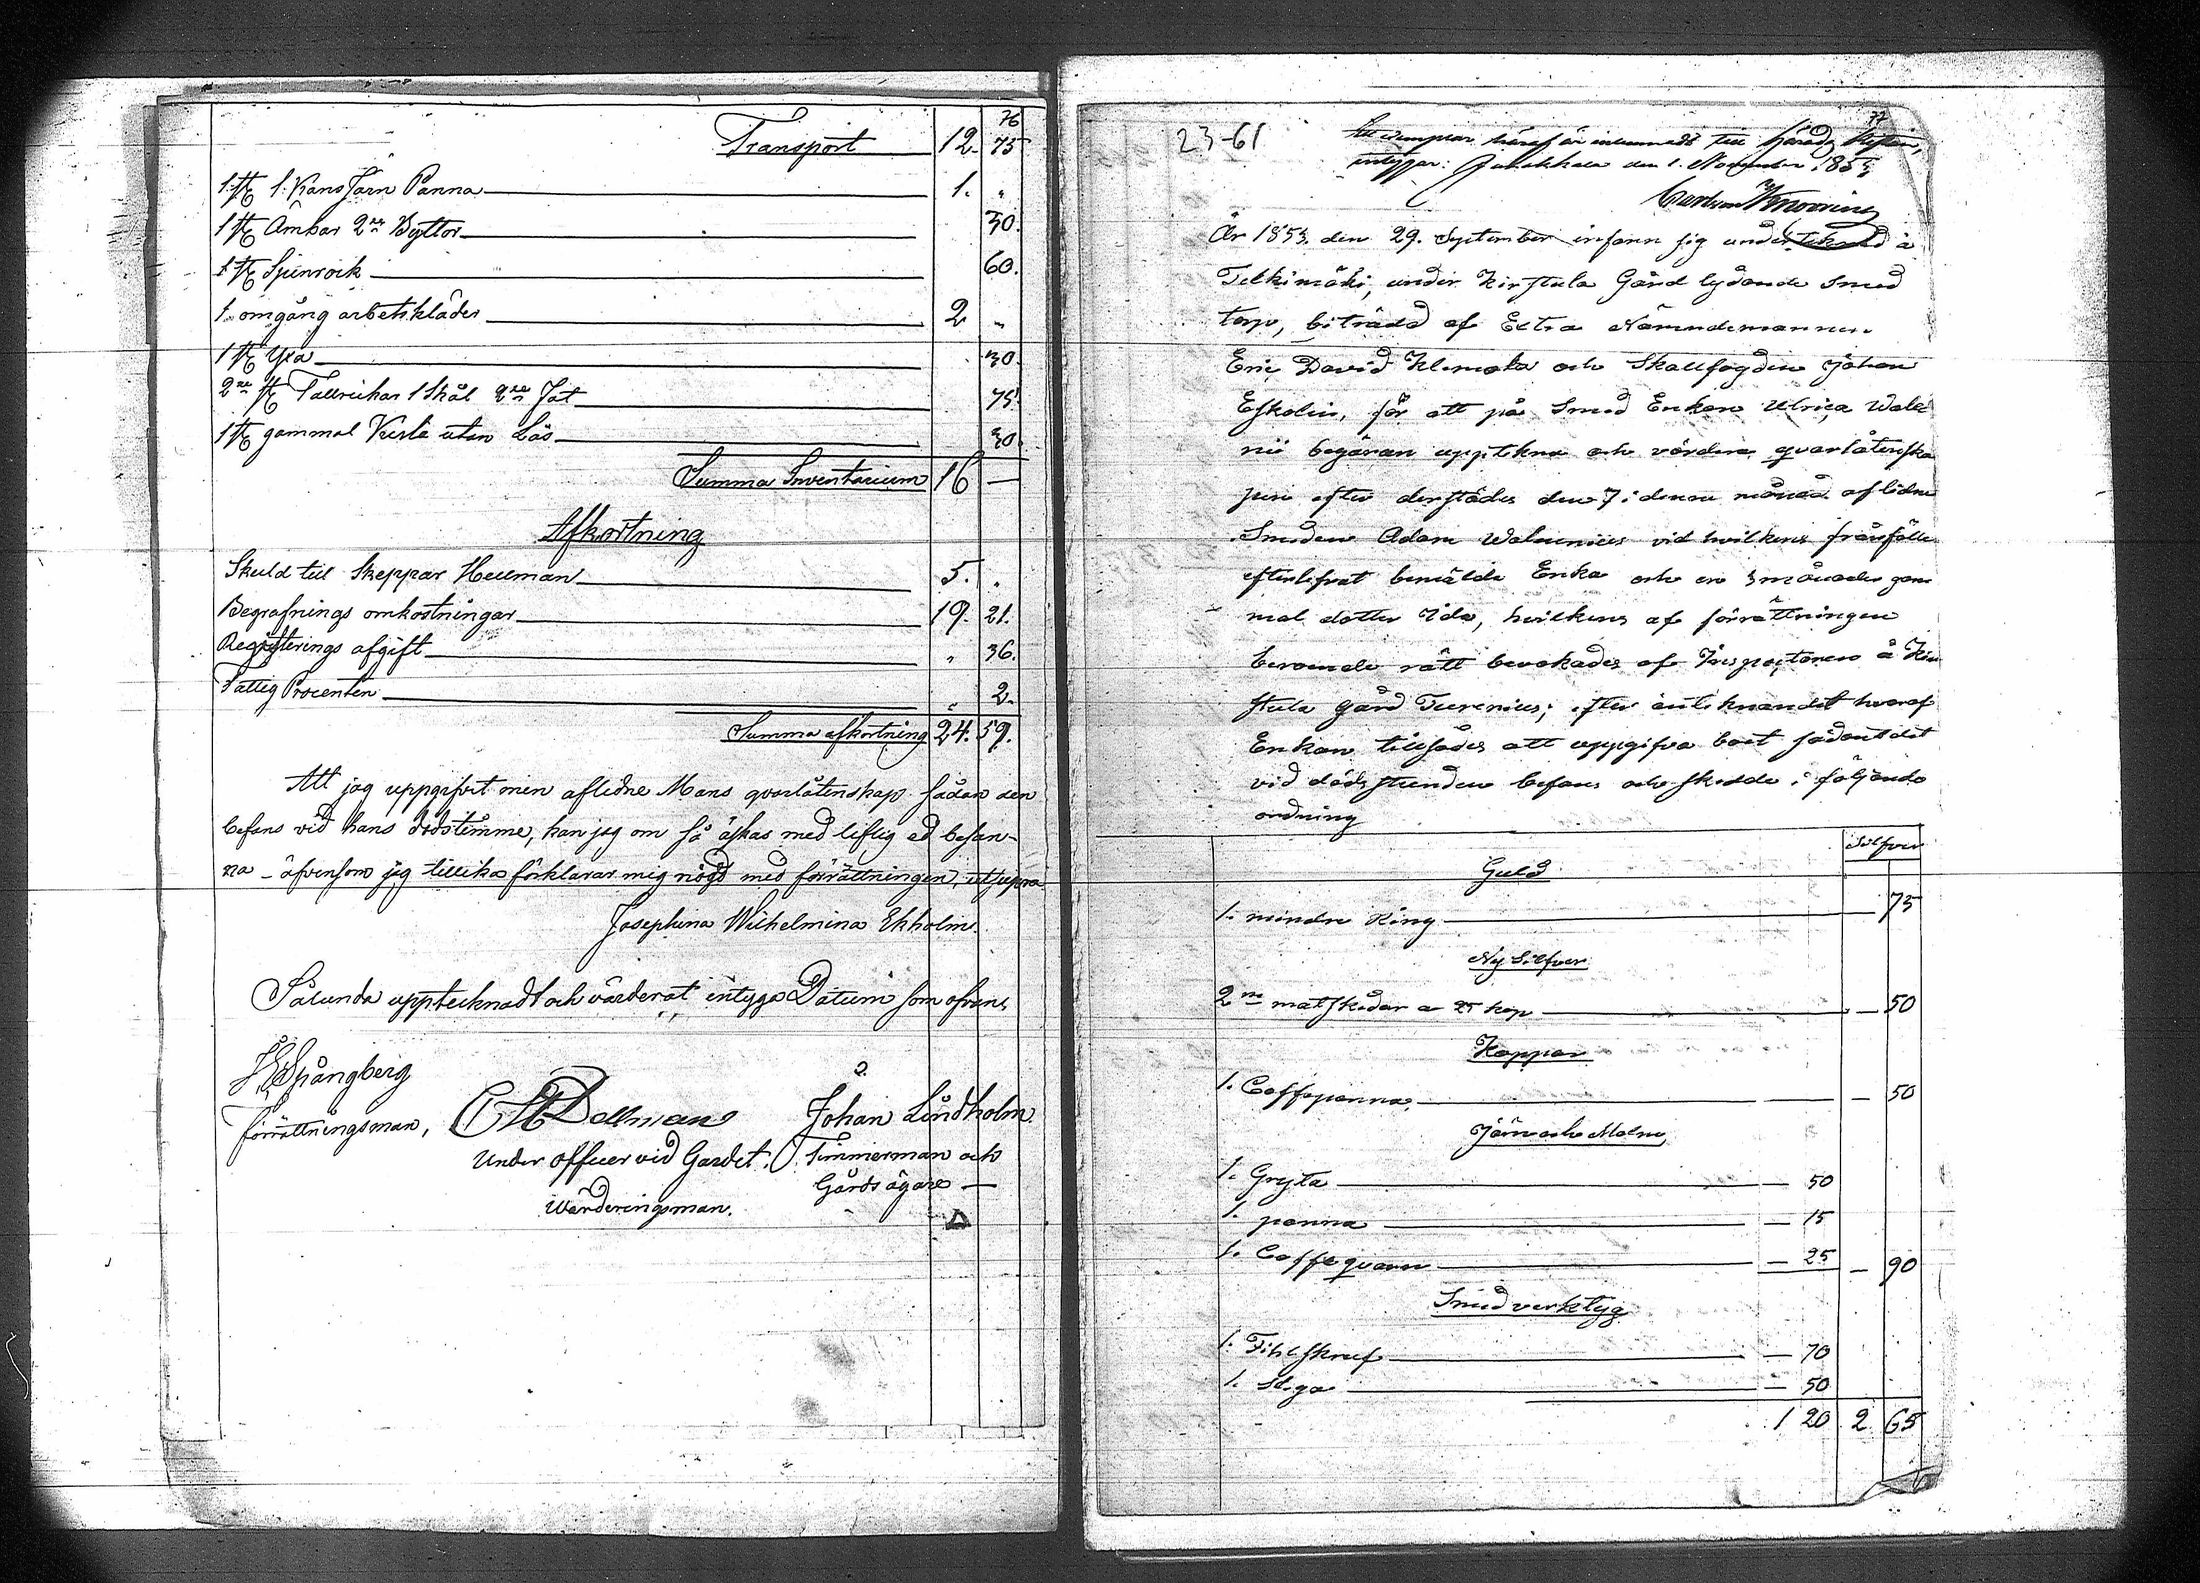 76
Transport 12. 75
1 st 1. Kans Järn Panna 1. "
1 st Ämbar 2ne Byttor 30.
1 st Spinrock 60.
1. omgång arbetskläder 2 "
1 st Yxa 30.
2ne st Tallrickar 1 Skål 2ne Fat 75.
1 st gammal Kista utan Lås 30.
Summa Inventarium 16 —
Afkortning
Skuld till Skeppar Hellman 5. "
Begrafnings omkostningar 19. 21.
Registerings afgift " 36.
Fattig Procenten " 2.
Summa afkortning 24. 59.
Att jag uppgifvit min aflidne Mans qvarlåtenskap sådan den
befans vid hans dödstimme, kan jag om så äskas med liflig ed besan-
na – äfvensom jag tillika förklarar mig nögd med förrättningen, ut supra
Josephina Wilhelmina Ekholm.
Sålunda upptecknadt och värderat, intyga Datum som ofvan,
Spångberg
förrättningsman,
Dellman
Under officer vid Gardet.
Wärderingsman.
Johan Lindholm.
Timmerman och
Gårdsägare —
77
23-61
exemplar häraf är inlemnadt till Härads Rätten,
intygar: Janakkala den 1. November 1853,
År 1853. den 29. September infann sig undertecknad å
Telkimäki, under Kirstula Gård lydande Smed
torp, biträdd af Extra Nämndemannen
Eric David Klemola och Skallfogden Johan
Eskolin, för att på Smed Enkan Ulrica Wale
nii begäran uppteckna och värdera qvarlåtenska
pen efter derstädes den 7 i denna månad aflidne
Smeden Adam Walenius vid hvilkens frånfälle
efterlefvat bemälde Enka och en 3 månader gam
mal dotter Ida, hvilkens af förrättningen
beroende rätt bevakades af Inspectoren å Kir
stula gård Turenius; efter antecknandet hvaraf
Enkan tillsades att uppgifva boet sådant det
vid dödsstunden befans och skedde i följande
ordning
Silfver
Guld
1. mindre Ring — 75
Ny Silfver
2ne matskedar a 25 kop — 50
Koppar
1. Caffepanna — 50
Järn och Malm
1. Gryta — 50
1. panna — 15
1. Caffe qvarn — 25 — 90
Smed verktyg
1. Filskruf — 70
1. — 50
1 20 2 65